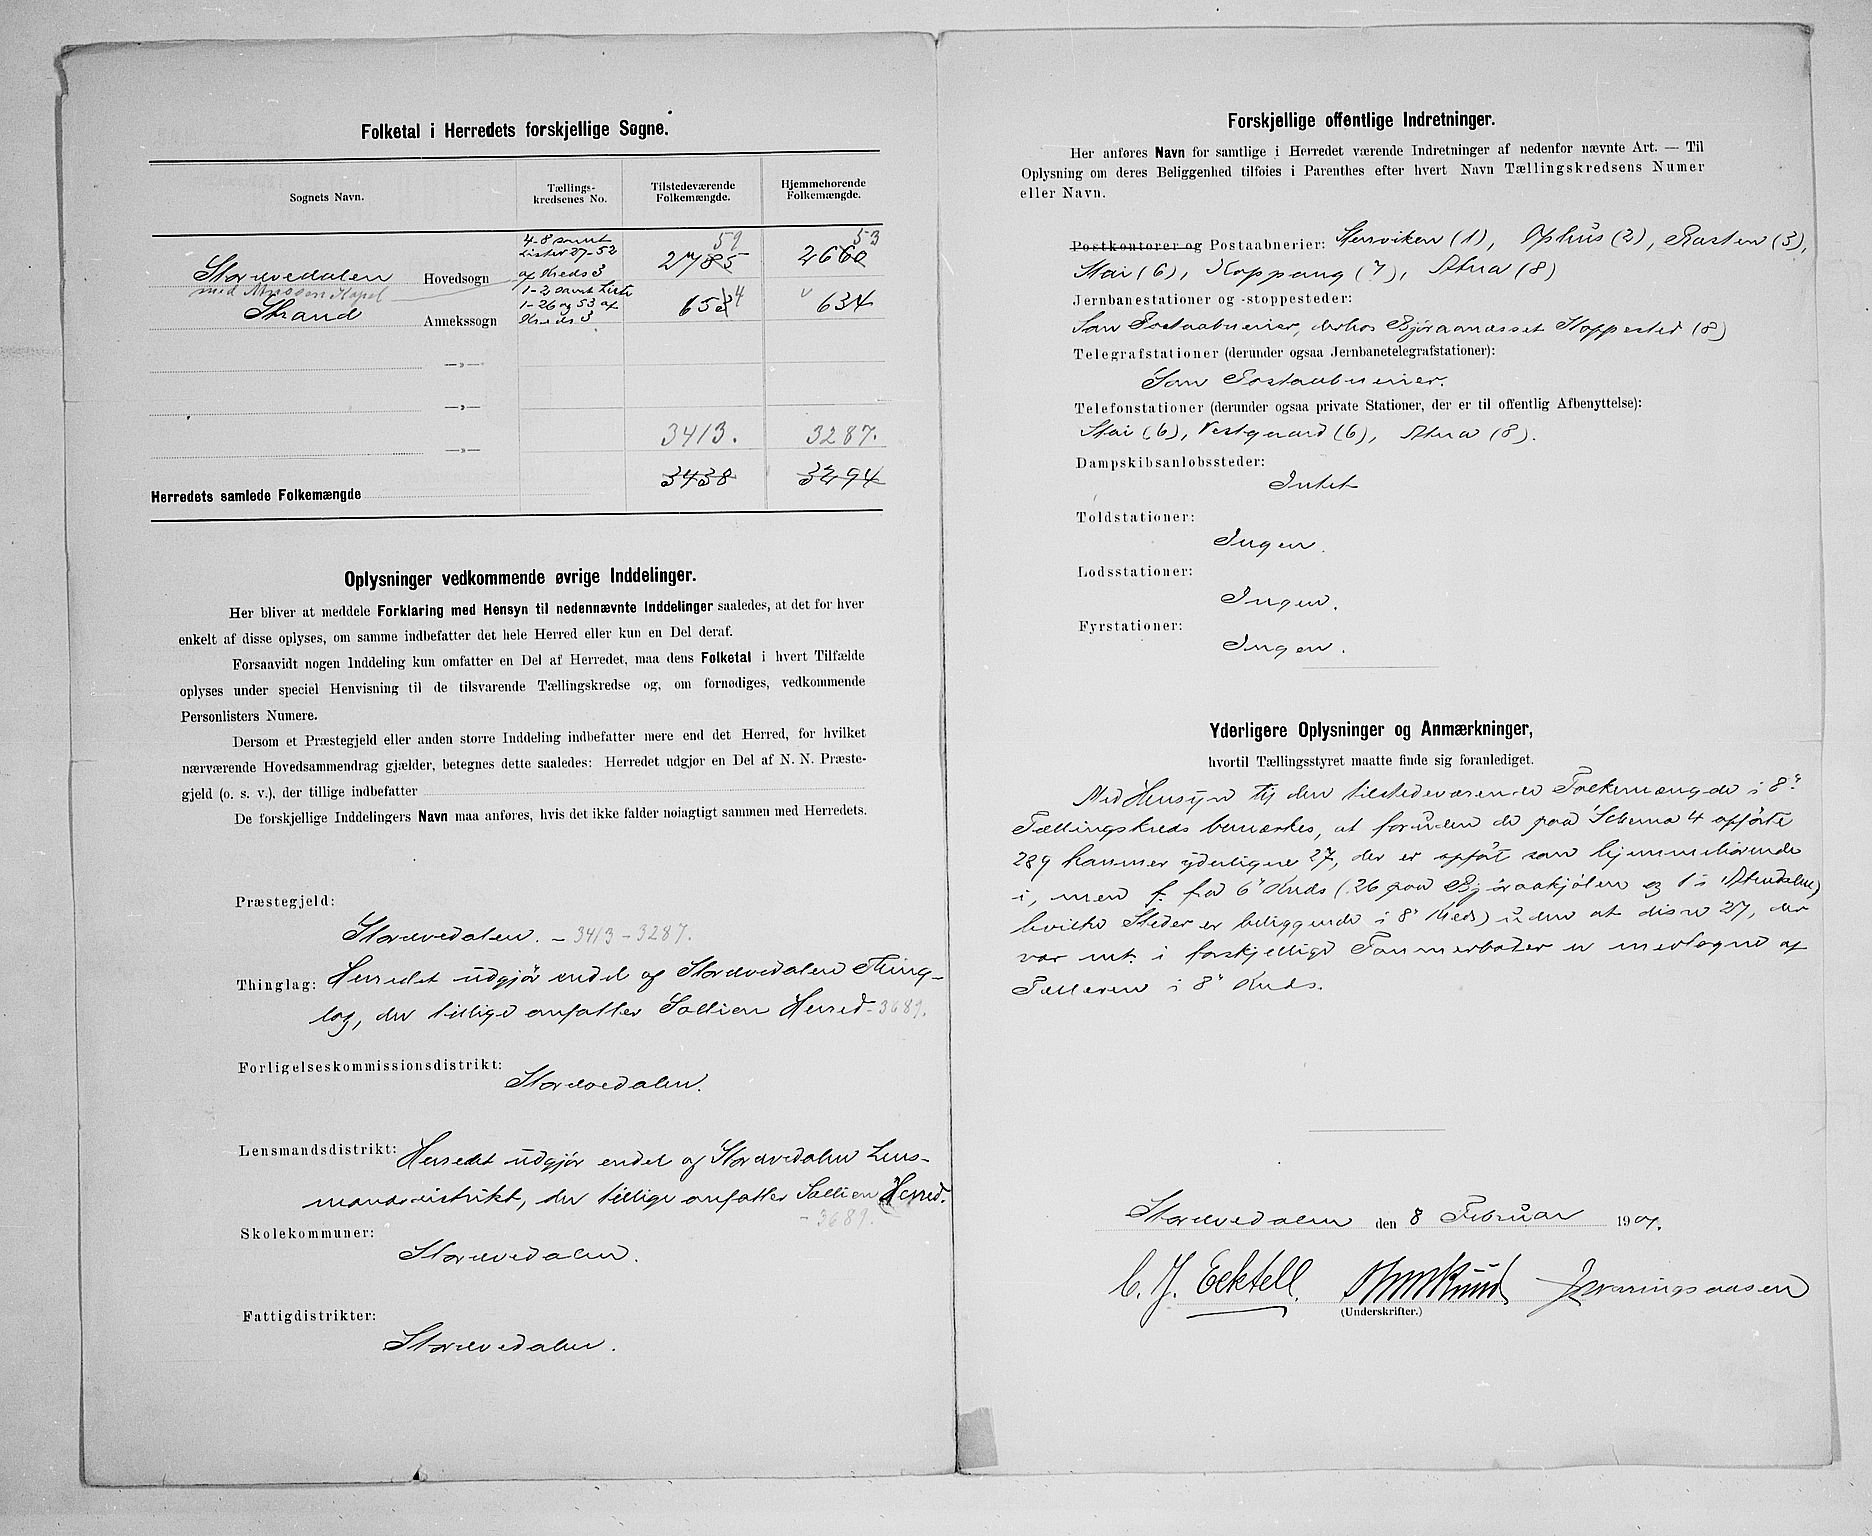 Folketal i Herredets forskjellige Sogne.
Sognets Navn.
Tællings-
kredsenes No.
Tilstedeværende
Folkemængde.
Hjemmehørende
Folkemængde.
4-8 samt
Lister 27-52
af Kreds 3
59
2785
53
2660
Storelvedalen Hovedsogn
med Atnesøen Kapel
1-2 samt Liste
1-26 og 53 af
Kreds 3
Strand Annekssogn
6534
634
—»—
—»—
3413. 3287.
—»—
3438 3294
Herredets samlede Folkemængde
Oplysninger vedkommende øvrige Inddelinger.
Her bliver at meddele Forklaring med Hensyn til nedennævnte Inddelinger saaledes, at det for hver
enkelt af disse oplyses, om samme indbefatter det hele Herred eller kun en Del deraf.
Forsaavidt nogen Inddeling kun omfatter en Del af Herredet, maa dens Folketal i hvert Tilfælde
oplyses under speciel Henvisning til de tilsvarende Tællingskredse og, om fornødiges, vedkommende
Personlisters Numere.
Dersom et Præstegjeld eller anden større Inddeling indbefatter mere end det Herred, for hvilket
nærværende Hovedsammendrag gjælder, betegnes dette saaledes: Herredet udgjør en Del af N. N. Præste-
gjeld (o. s. v.), der tillige indbefatter
De forskjellige Inddelingers Navn maa anføres, hvis det ikke falder nøiagtigt sammen med Herredets.
Præstegjeld:
Storelvedalen. – 3413 – 3287.
Thinglag: Herredet udgjør endel af Storelvedalen Thing-
lag, der tillige omfatter Sollien Herred - 3689.
Forligelseskommissionsdistrikt:
Storelvedalen.
Lensmandsdistrikt: Herredet udgjør endel af Storelvedalen Lens-
mandsdistrikt, der tillige omfatter Sollien Herred.
- 3689.
Skolekommuner:
Storelvedalen.
Fattigdistrikter:
Storelvedalen.
Forskjellige offentlige Indretninger.
Her anføres Navn for samtlige i Herredet værende Indretninger af nedenfor nævnte Art. — Til
Oplysning om deres Beliggenhed tilføies i Parenthes efter hvert Navn Tællingskredsens Numer
eller Navn.
Postkontorer og Postaabnerier: Stenviken (1), Ophus (2), Rasten (3),
Stai (6), Koppang (7), Atna (8)
Jernbanestationer og -stoppesteder:
Som Postaabnerier, derhos Bjøraanæsset Stoppested (8)
Telegrafstationer (derunder ogsaa Jernbanetelegrafstationer):
Som Postaabnerier.
Telefonstationer (derunder ogsaa private Stationer, der er til offentlig Afbenyttelse):
Stai (6), Vestgaard (6), Atna (8).
Dampskibsanløbssteder:
Intet
Toldstationer:
Ingen.
Lodsstationer:
Ingen.
Fyrstationer:
Ingen.
Yderligere Oplysninger og Anmærkninger,
hvortil Tællingsstyret maatte finde sig foranlediget.
Med Hensyn til den tilstedeværende Folkemængde i 8de
Tællingskreds bemærkes, at foruden de paa Schema 4 opførte
289 kommer yderligere 27, der er opført som hjemmehørende
i, men f. fra 6te Kreds (26 paa Bjøraakjølen og 1 i Atnedalen)
hvilke Steder er beliggende i 8de Kreds) uden at disse 27, der
var mt. i forskjellige Tømmerkoier er medtagne af
Tælleren i 8de Kreds.
Storelvedalen den 8 Februar 1901.
(Underskrifter.)